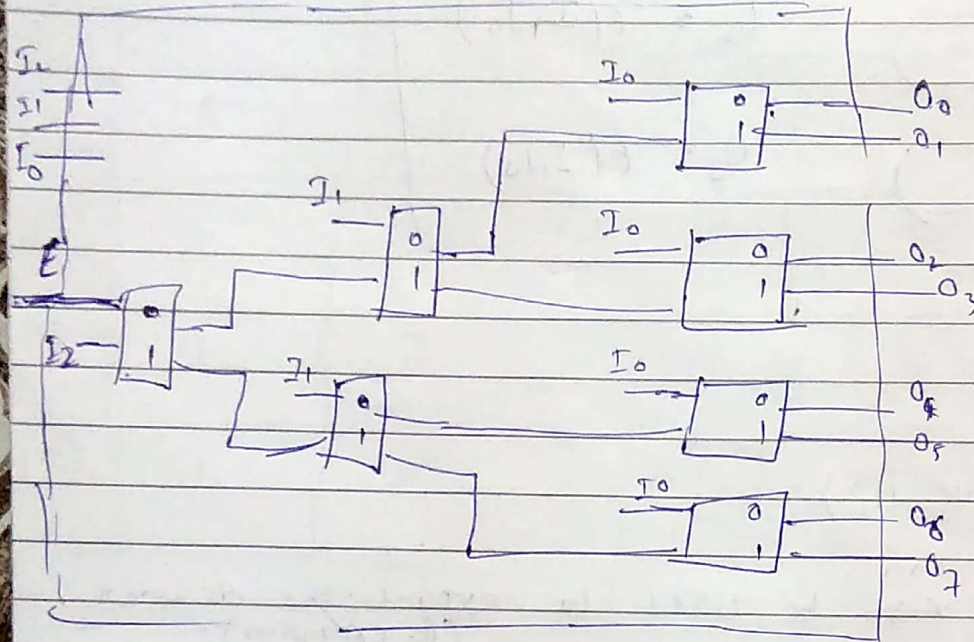 I2
I1
I0
E
I2
0
1
I1
0
1
I1
0
1
I0
0
1
O0
O1
I0
0
1
O2
O3
I0
0
1
O4
O5
I0
0
1
O6
O7